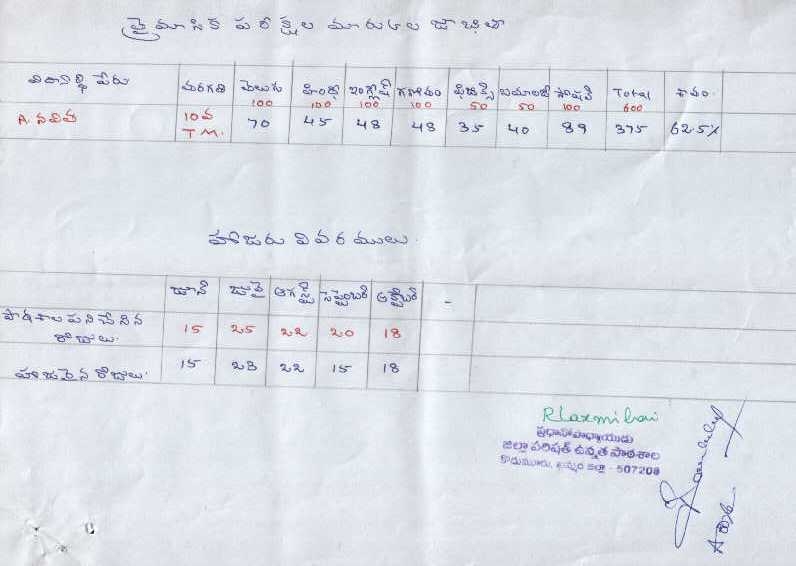 త్రైమాసిక పరీక్షల మార్కుల జాబితా
విద్యార్థి పేరు తరగతి తెలుగు హిందీ ఇంగ్లీష్ గణితం ఫిజిక్స్ బయాలజీ సోషల్ Total శాతం
100 100 100 100 50 50 100 600
A. నవిత 10వ 70 45 48 48 35 40 89 375 62.5%
T.M.
హాజరు వివరములు.
జూన్ జులై ఆగస్ట్ సెప్టెంబర్ అక్టోబర్ -
పాఠశాల పనిచేసిన 15 25 22 20 18
రోజులు.
హాజరైన రోజులు. 15 23 22 15 18
R Laxmi bai
ప్రధానోపాధ్యాయుడు
జిల్లా పరిషత్ ఉన్నత పాఠశాల
కొదుమూరు, ఖమ్మం జిల్లా - 507208